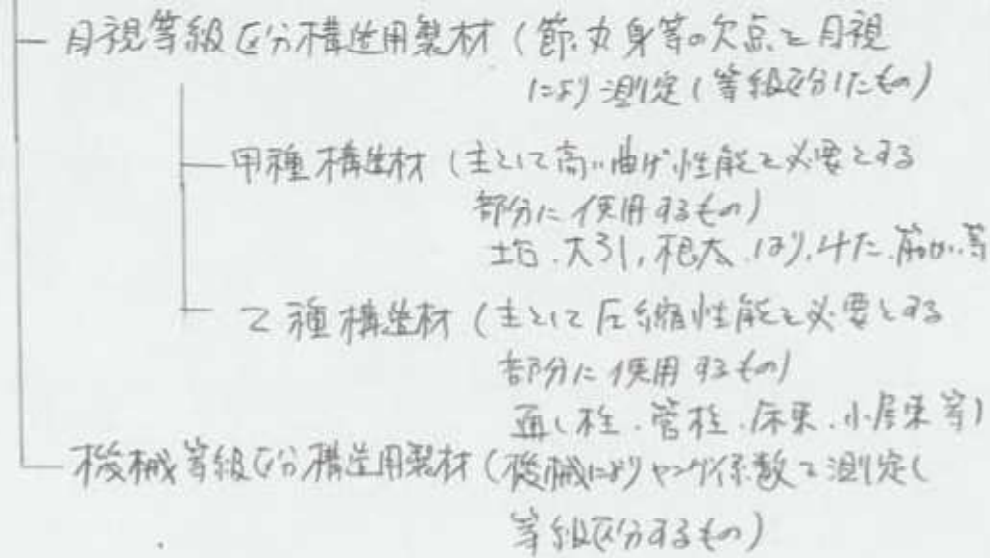 目視等級区分構造用製材（節、丸身等の欠点を目視
により測定し等級区分したもの）
甲種構造材（主として高い曲げ性能を必要とする
部分に使用するもの）
土台、大引、根太、はり、けた、筋かい等
乙種構造材（主として圧縮性能を必要とする
部分に使用するもの）
通し柱、管柱、床束、小屋束等）
機械等級区分構造用製材（機械によりヤング係数を測定し
等級区分するもの）